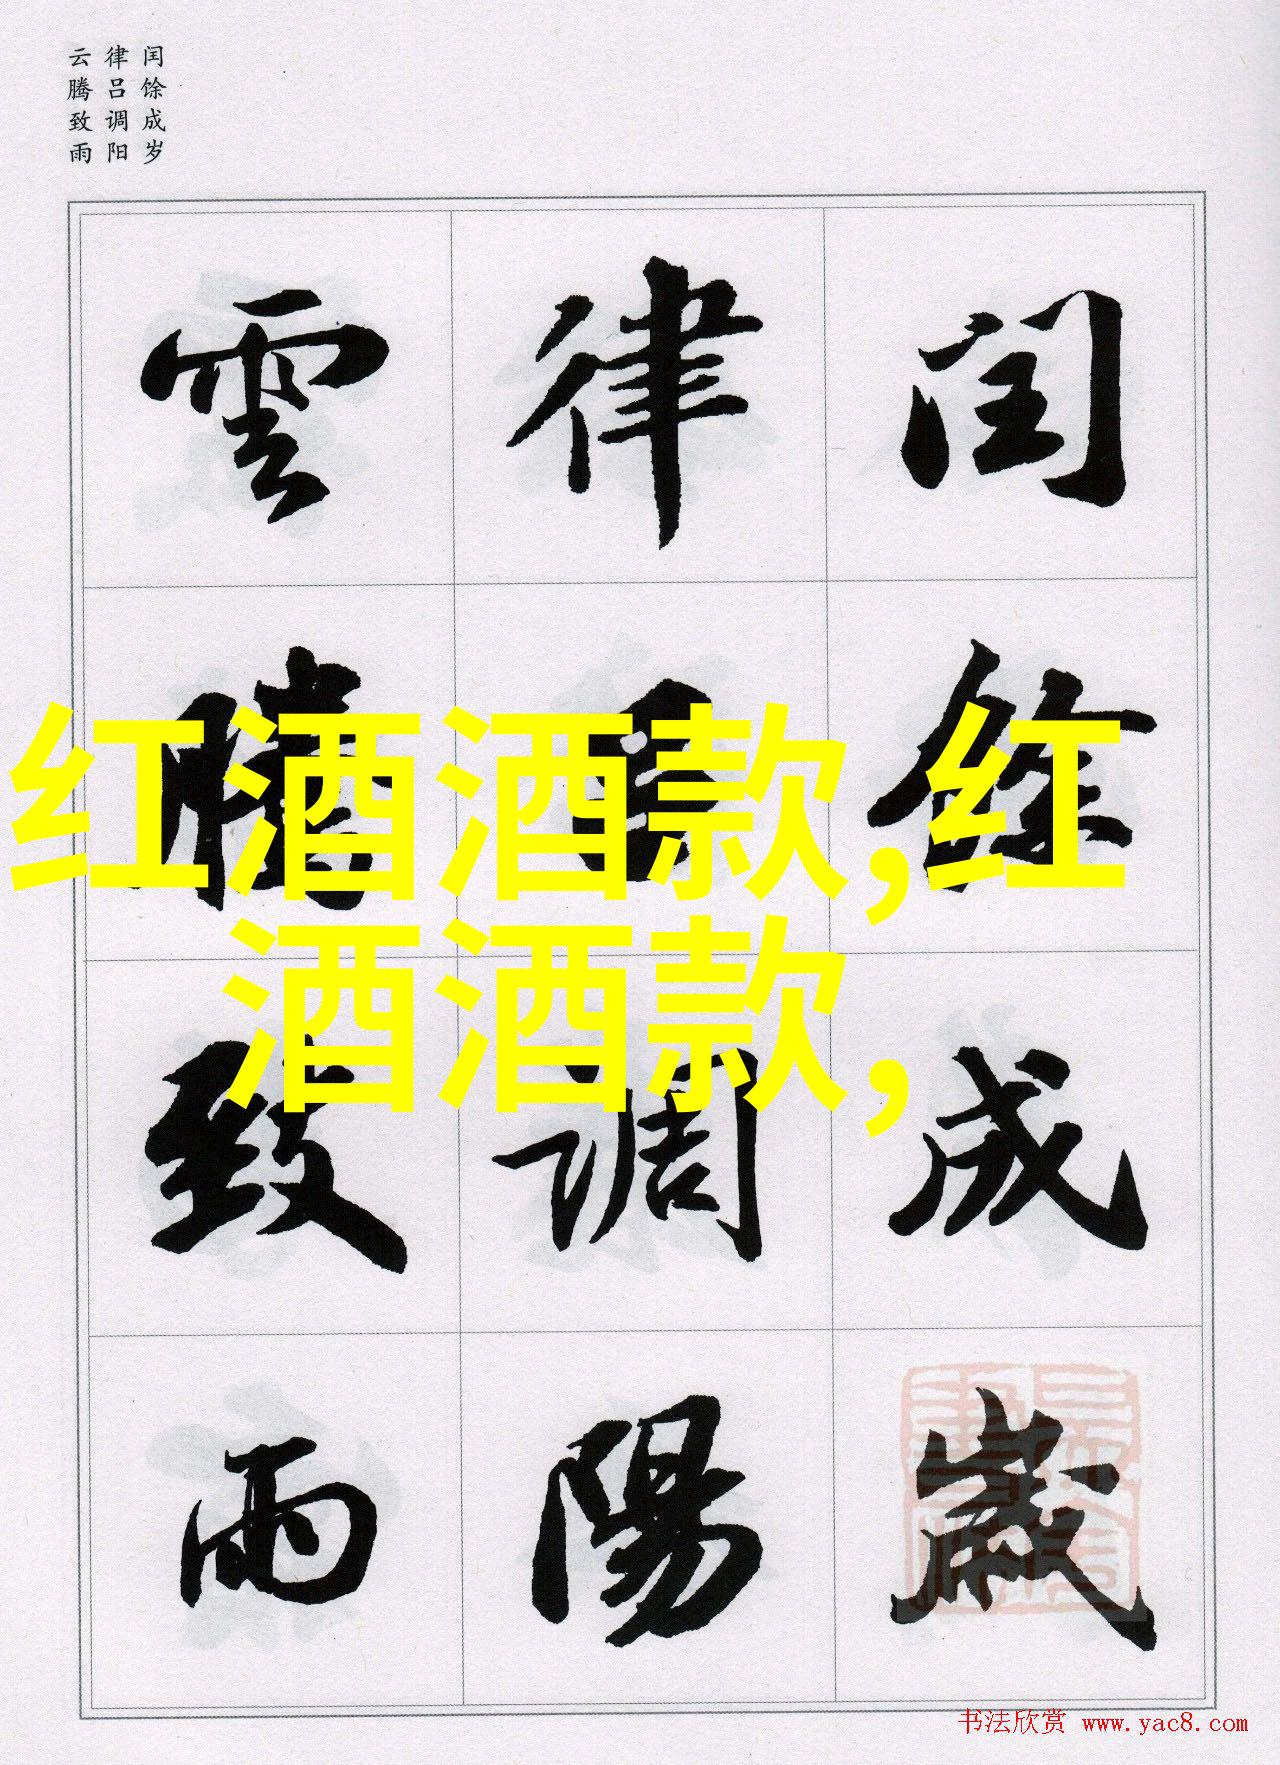 闰馀成岁
律吕调阳
云腾致雨
闰馀成歲
律吕调陽
雲腾致雨
红酒酒款,红
酒酒款,
书法欣赏 www.yac8.com